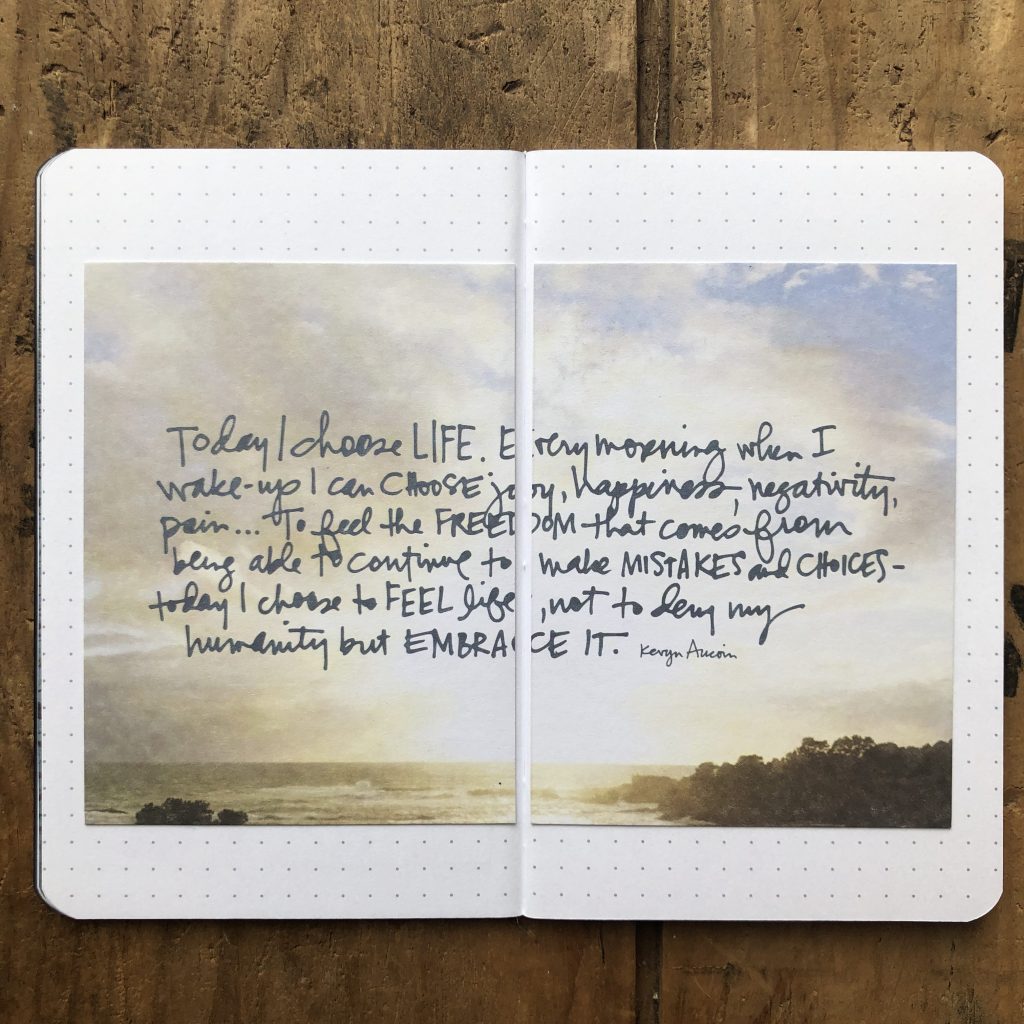 Today I choose LIFE. Every morning when I
wake-up I can CHOOSE joy, happiness, negativity,
pain... To feel the FREEDOM that comes from
being able to continue to make MISTAKES and CHOICES -
today I choose to FEEL life, not to deny my
humanity but EMBRACE IT. Kevyn Aucoin